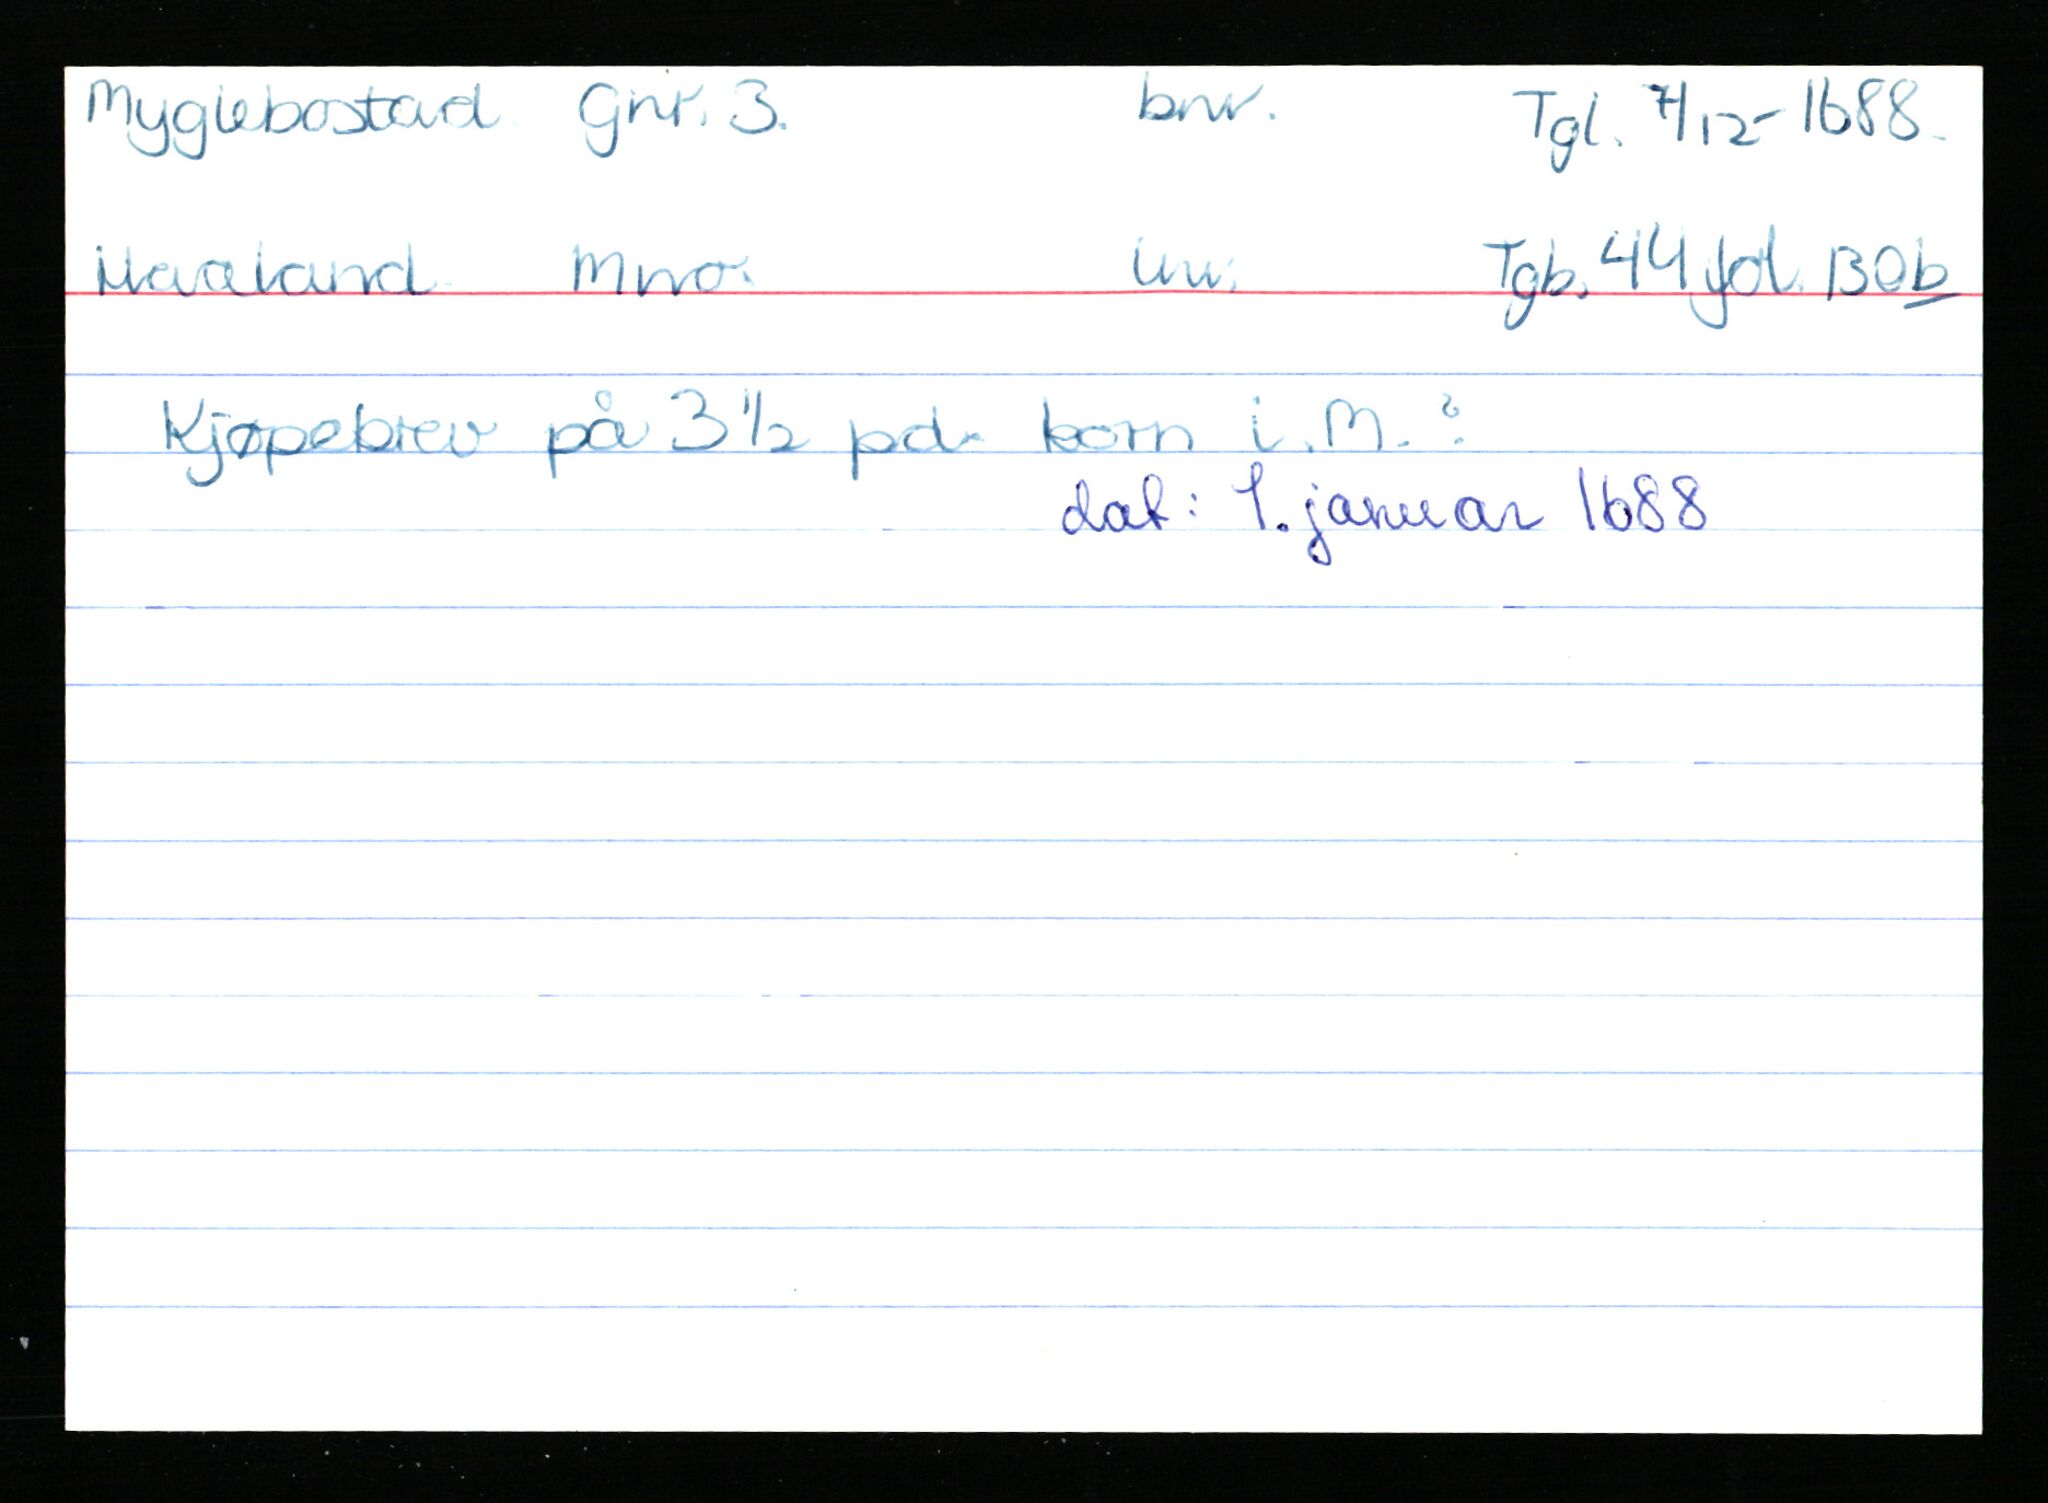 Myglebostad Gnr. 3. bnr. Tgl. 7/12-1688.
Haaland Mno. lnr. Tgb. 44 fol. 130b
Kjøpebrev på 3 1/2 pd. korn i M.?
dat: 1. januar 1688